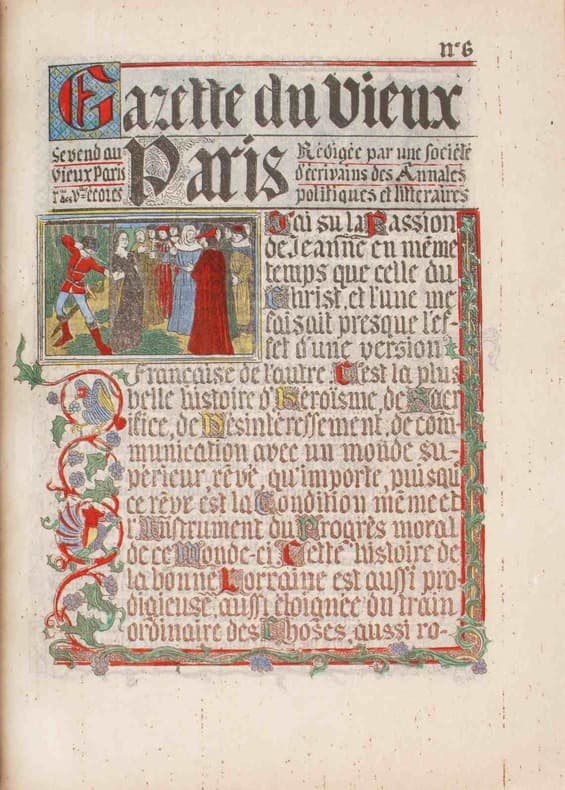 n°6
Gazette du Vieux
Paris
Se vend au
Vieux Paris
écoles
Rédigée par une société
d'écrivains des Annales
politiques et litteraires
J'ai su la Passion
de Jeanne en même
temps que celle du
Christ, et l'une me
faisait presque l'ef-
fet d'une version
Française de l'autre. C'est la plus
belle histoire d'Héroïsme, de Sacri
ifice, de Désintéressement, de com-
munication avec un monde su-
périeur, rêvé, qu'importe, puisqu
ce rêve est la Condition même et
l'Instrument du Progrès moral
de ce Monde-ci. Cette histoire de
la bonne Lorraine est aussi pro
digieuse, aussi éloignée du train
ordinaire des Choses, aussi ro-